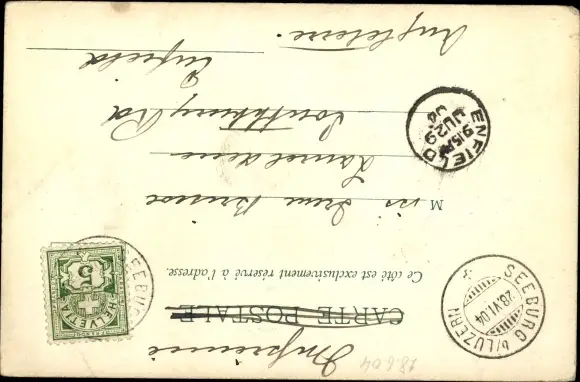 Imprimé
28.6.04
CARTE POSTALE
Ce côté est exclusivement réservé à l'adresse.
SEEBURG b/LUZERN
28.VI.04
SEEBURG
HELVETIA
5
Miss Irene Briscoe
ENFIELD
9.15PM
JU 29
04
Enfield
Angleterre